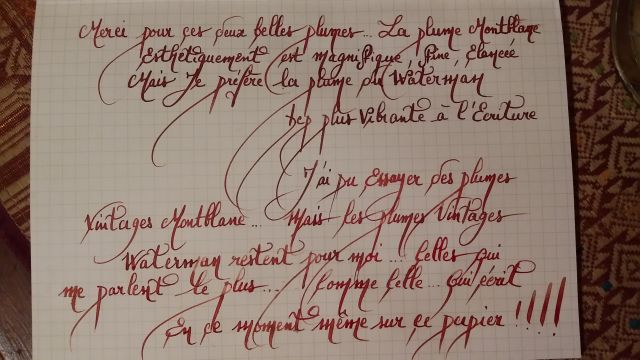 Merci pour ces deux belles plumes... La plume Montblanc
Esthétiquement est magnifique, Fine, Élancée
Mais Je préfère la plume du Waterman
bcp plus Vibrante à l'Ecriture
J'ai pu Essayer des plumes
Vintages Montblanc... mais les plumes Vintages
Waterman restent pour moi... Celles qui
me parlent le plus... Comme Celle... Qui écrit
En ce moment même sur ce papier !!!!